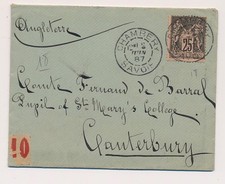 Angleterre
CHAMBERY
JUIN
87
SAVOIE
25
Comte Fernand de Barral
Pupil of St Mary's College
Canterbury